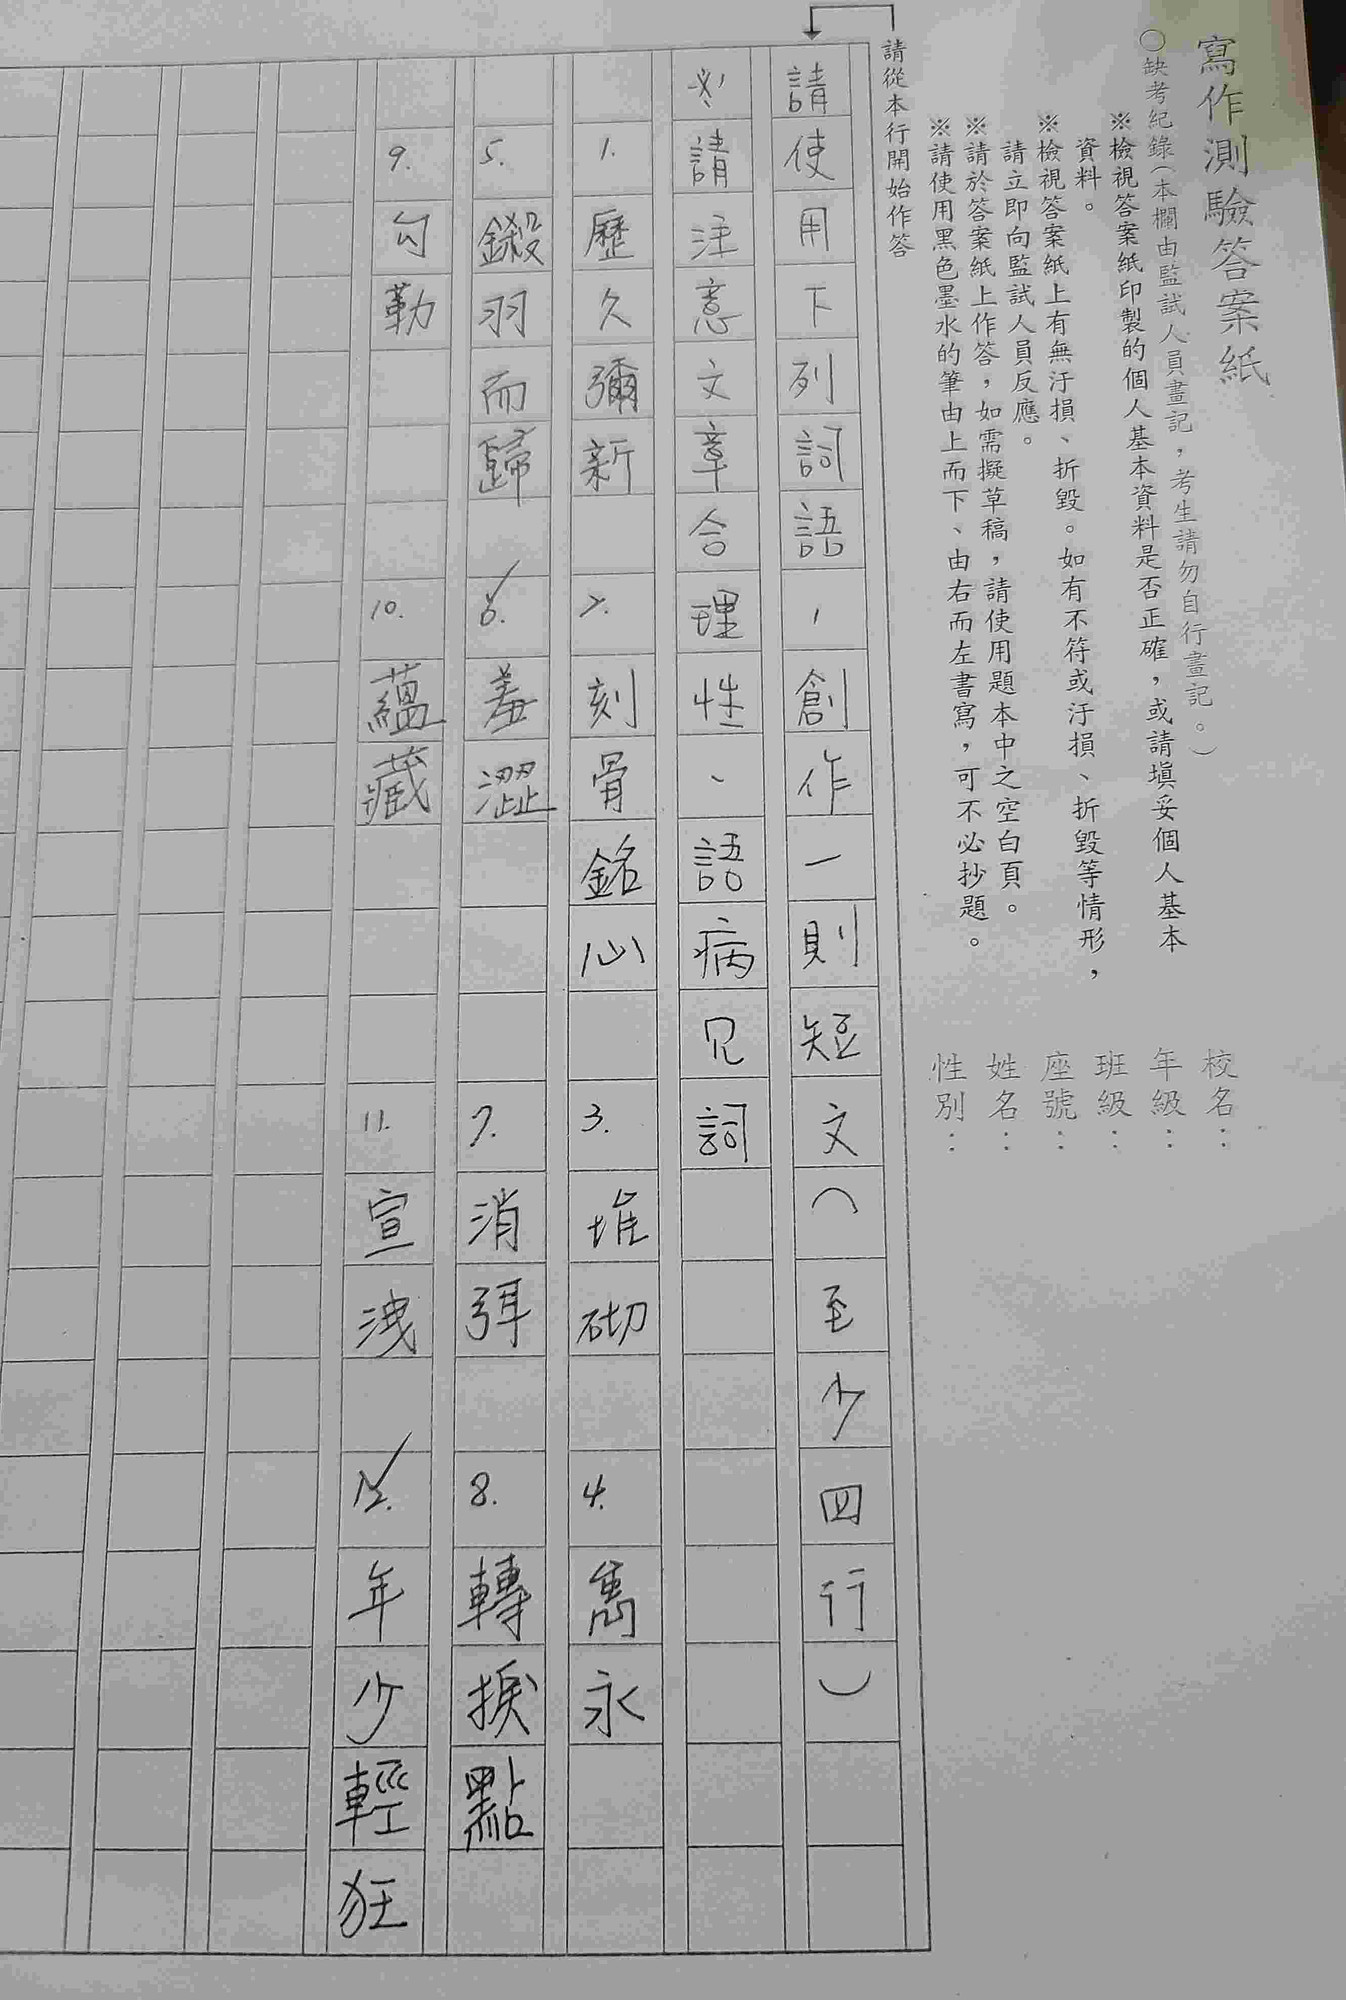 寫作測驗答案紙
○缺考紀錄(本欄由監試人員畫記,考生請勿自行畫記。)
※檢視答案紙印製的個人基本資料是否正確,或請填妥個人基本
資料。
※檢視答案紙上有無汙損、折毀。如有不符或汙損、折毀等情形,
請立即向監試人員反應。
※請於答案紙上作答,如需擬草稿,請使用題本中之空白頁。
※請使用黑色墨水的筆由上而下、由右而左書寫,可不必抄題。
校名:
年級:
班級:
座號:
姓名:
性別:
請從本行開始作答
請使用下列詞語,創作一則短文(至少四行)
※請注意文章合理性、語病見詞
1.歷久彌新 2.刻骨銘心 3.堆砌 4.雋永
5.鎩羽而歸 6.羞澀 7.消弭 8.轉捩點
9.勾勒 10.蘊藏 11.宣洩 12.年少輕狂